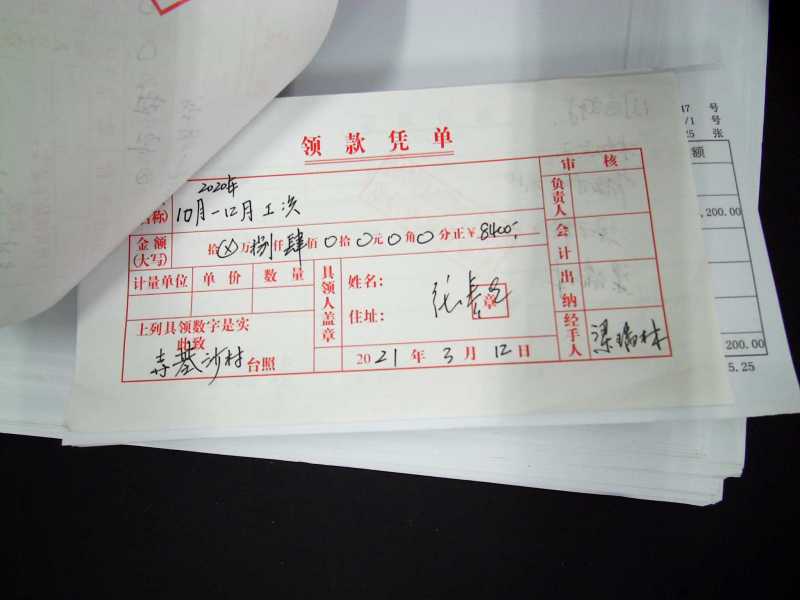 领款凭单
审核
名称)
2020年
10月-12月工资
负责人
金额(大写)
拾⊗万捌仟肆佰0拾0元0角0分正¥8400-
会计
计量单位 单价 数量
具领人盖章
姓名:
章
住址:
出纳
上列具领数字是实
此致
沙村台照
2021年3月12日
经手人
梁瑞林
47 号
/1 号
25 张
额
,200.00
200.00
5.25